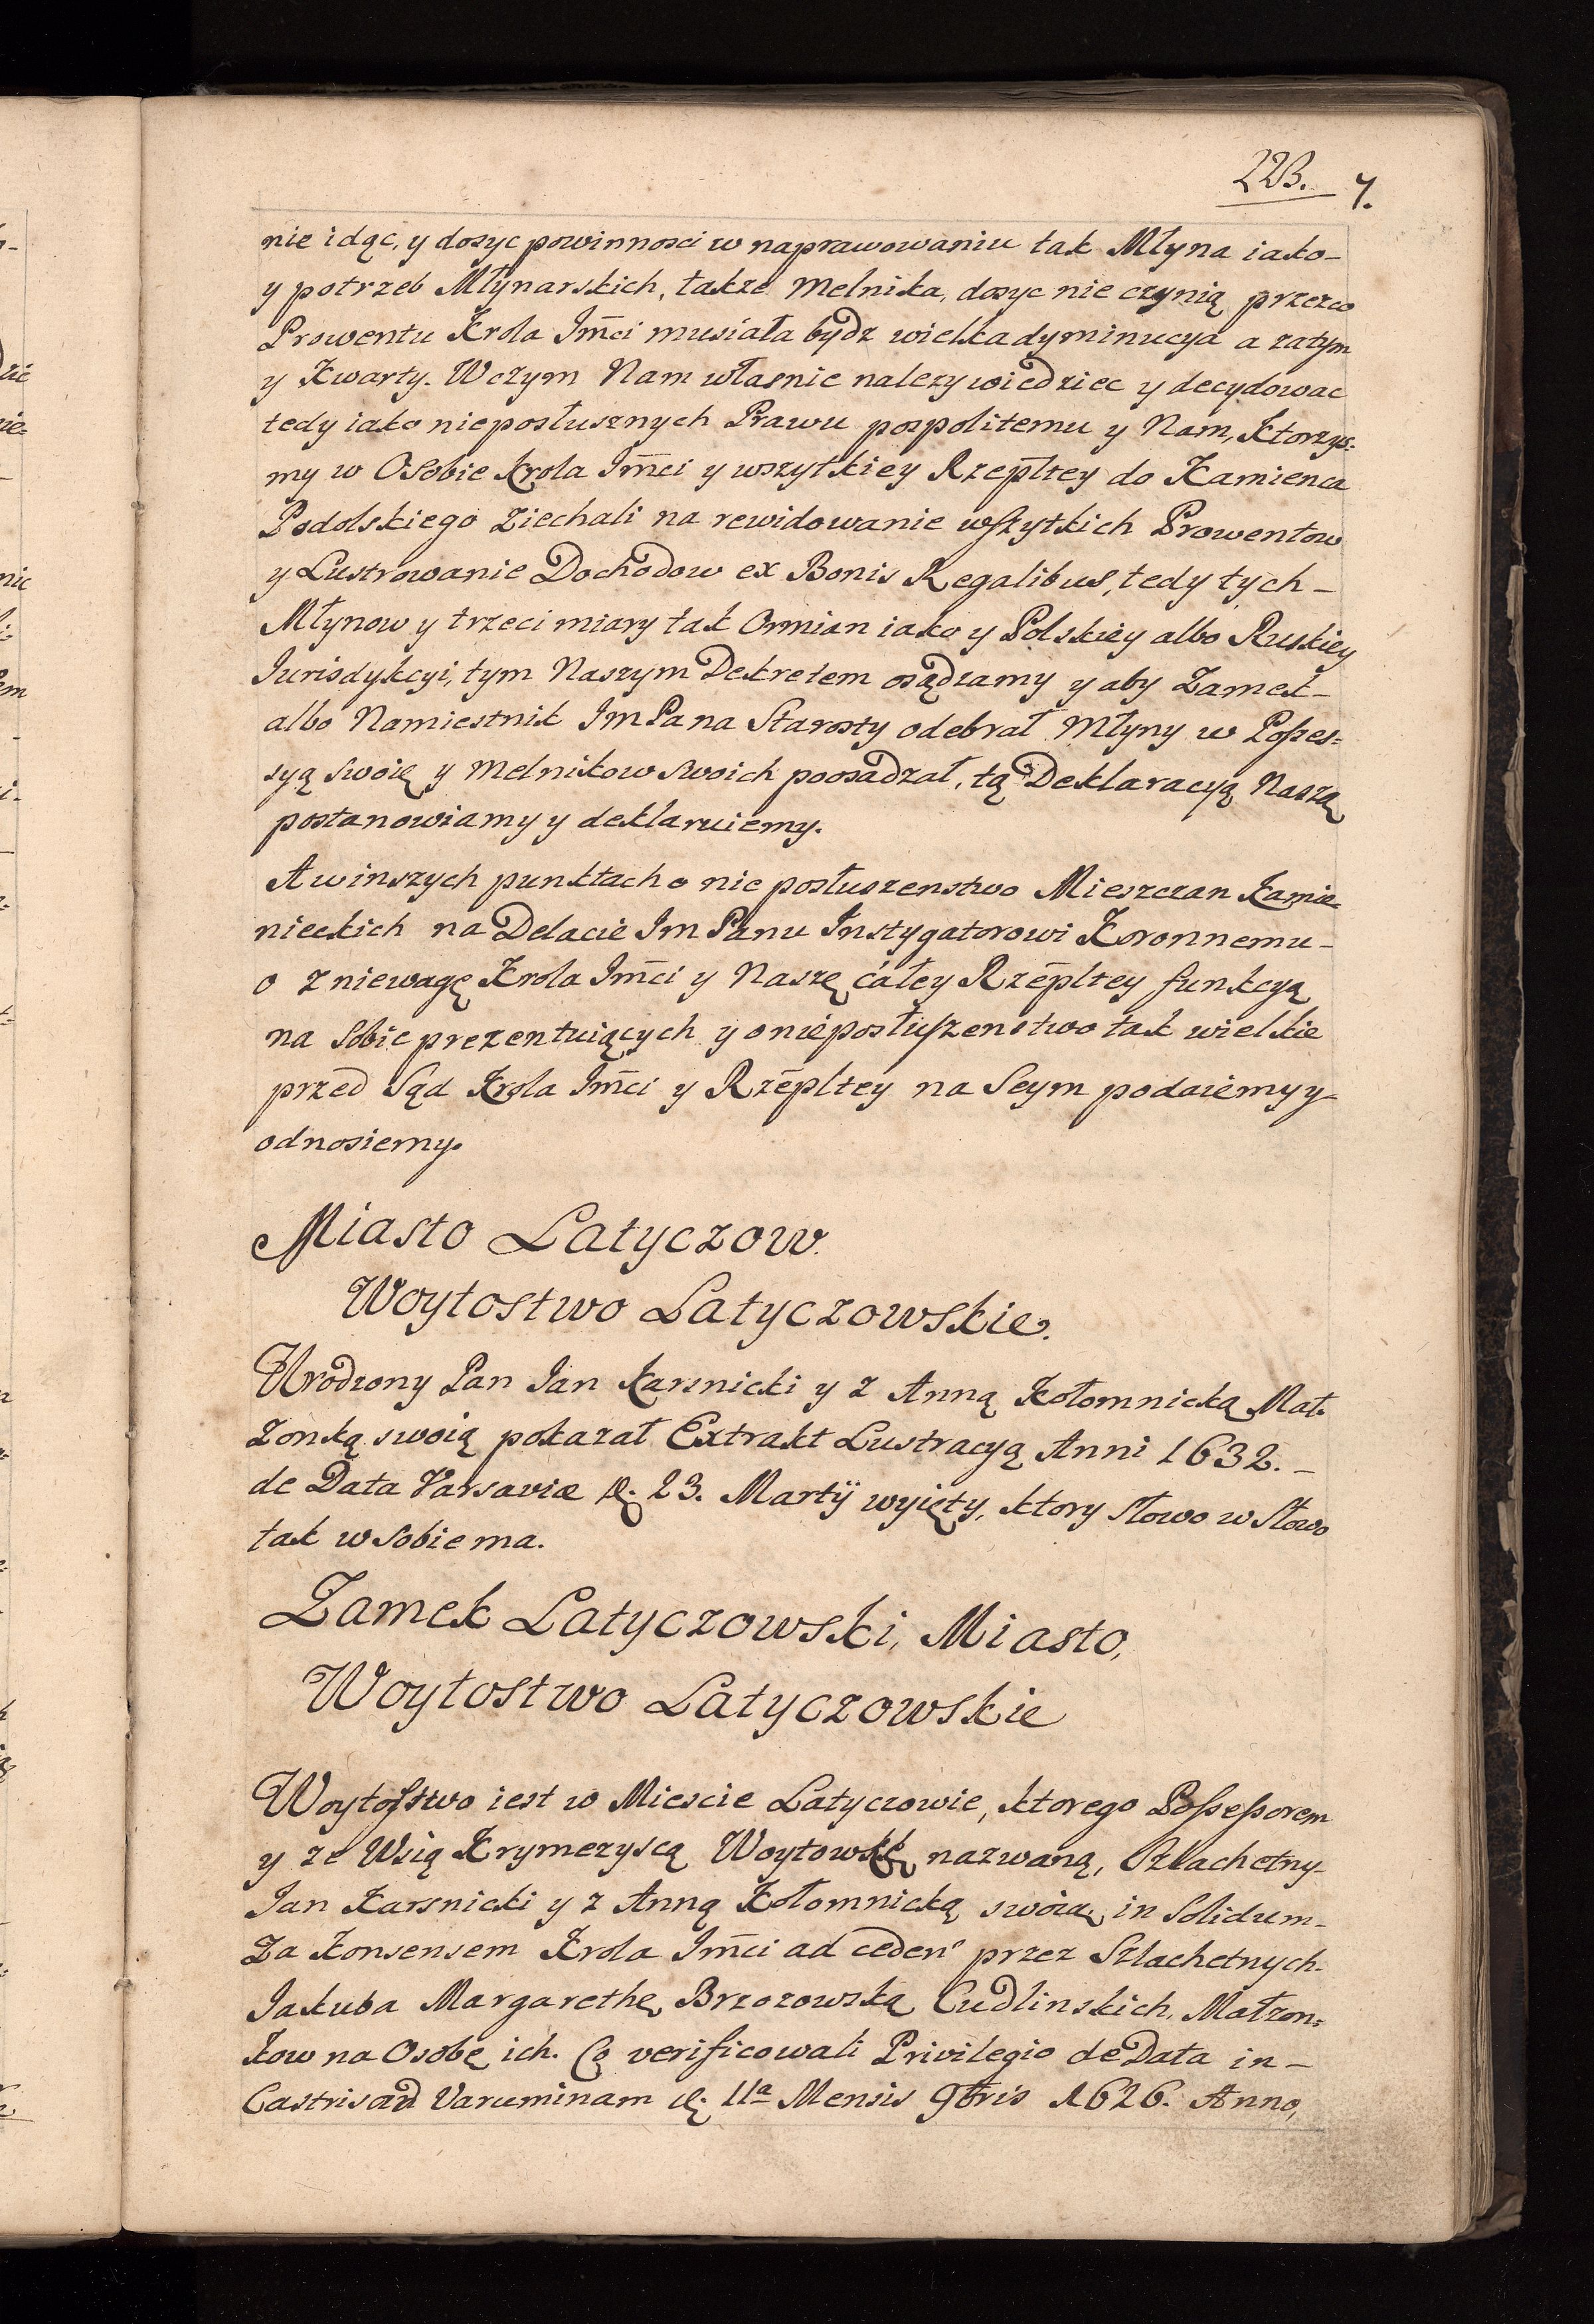 223. 7.
nie idąc, y dosyc powinnosci w naprawowaniu tak Młyna iako-
y potrzeb Młynarskich, także Melnika, dosyc nie czynią przezco
Prowentu Krola Jm̄ci musiała bydz wielka dyminucya a zatym
y Kwarty. W czym Nam własnie nalezy wiedziec y decydowac
tedy iako nieposłusznych Prawu pospolitemu y Nam, Ktorzys=
my w Osobie Krola Jm̄ci y wszytkiey Rzēpltey do Kamienca
Podolskiego ziechali na rewidowanie wszytkich Prowentow
y Lustrowanie Dochodow ex Bonis Regalibus, tedy tych-
Młynow y trzeci miary tak Ormian iako y Polskiey albo Ruskiey
Iurisdykcyi, tym Naszym Dekretem osądzamy y aby Zamek-
albo Namiestnik Im Pana Starosty odebrał Młyny w Posses=
syą swoię y Melnikow swoich poosadzał, tą Deklaracyą Naszą
postanowiamy y deklaruiemy.
A w inszych punktach o nie posłuszenstwo Mieszczan Kamie=
nieckich na Delacie Im Panu Instygatorowi Koronnemu-
o zniewagę Krola Jm̄ci y Naszę całey Rzēpltey funkcyą
na sobie prezentuiących y o nieposłuszenstwo tak wielkie
przed Sąd Krola Jm̄ci y Rzēpltey na Seym podaiemy y-
odnosiemy.
Miasto Latyczow.
Woytostwo Latyczowskie.
Urodzony Pan Ian Karsnicki y z Anną Kołomnicką Mał=
zonką swoią pokazał Extrakt Lustracyą Anni 1632.-
de Data Varsaviæ d. 23. Martÿ wyięty, ktory słowo w słowo
tak w sobie ma.
Zamek Latyczowski, Miasto,
Woytostwo Latyczowskie
Woytostwo iest w Miescie Latyczowie, ktorego Possessorem
y ze Wsią Krymezyscą Woytowskę nazwaną, Szlachetny-
Ian Karsnicki y z Anną Kołomnicką swoią in Solidum-
Za Konsensem Krola Jm̄ci ad ceden° przez Szlachetnych-
Iakuba Margarethę Brzozowską Cudlinskich, Małzon=
kow na Osobę ich. Co verificowali Privilegio de Data in-
Castris ad Varuminam d. 11ª Mensis 9bris 1626. Anno,